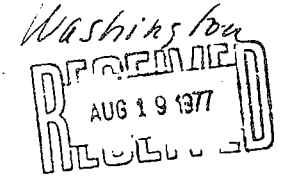 Washington
RECEIVED
AUG 19 1977